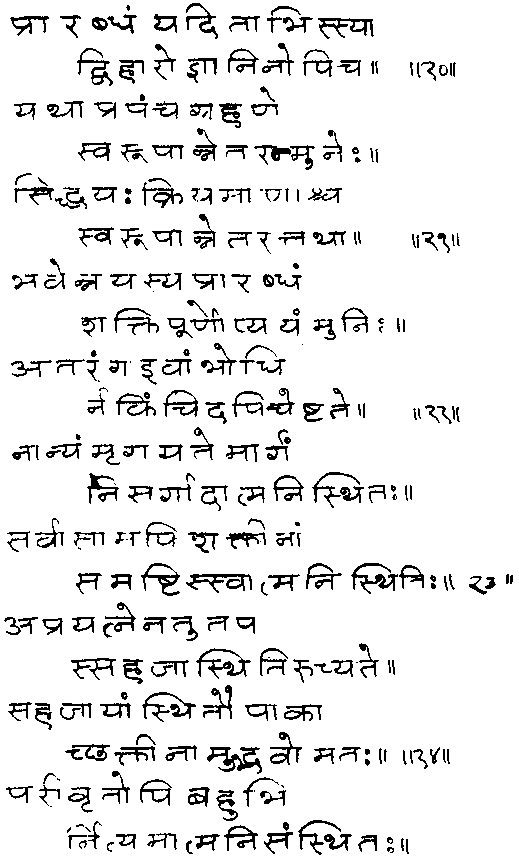 प्रारब्धं यदि ताभिस्स्या
द्विहारो ज्ञानिनोपि च॥ ॥२०॥
यथा प्रपंच ग्रहणे
स्वरूपान्नेतरन्मुनेः॥
सिद्धयः क्रियमाणाश्च
स्वरूपान्नेतरत्तथा॥ ॥२१॥
भवेन्नयस्य प्रारब्धं
शक्तिपूर्णोप्ययं मुनिः॥
अतरंग इवांभोधि
र्न किंचिदपि चेष्टते॥ ॥२२॥
नान्यं मृगयते मार्गं
निसर्गादात्मनि स्थितः॥
सर्वासामपि शक्तीनां
समष्टिस्स्वात्मनि स्थितिः॥ २३॥
अप्रयत्नेन तु तप
स्सहजा स्थितिरुच्यते॥
सहजायां स्थितौ पाका
च्छक्तीनामुद्भवो मतः॥ ॥२४॥
परीवृतोपि बहुभि
र्नित्यमात्मनि संस्थितः॥